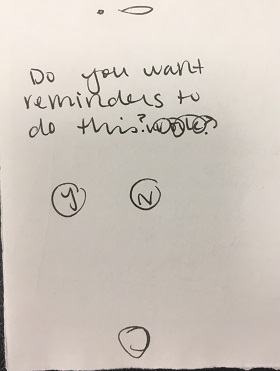 Do you want
reminders to
do this?
Y N